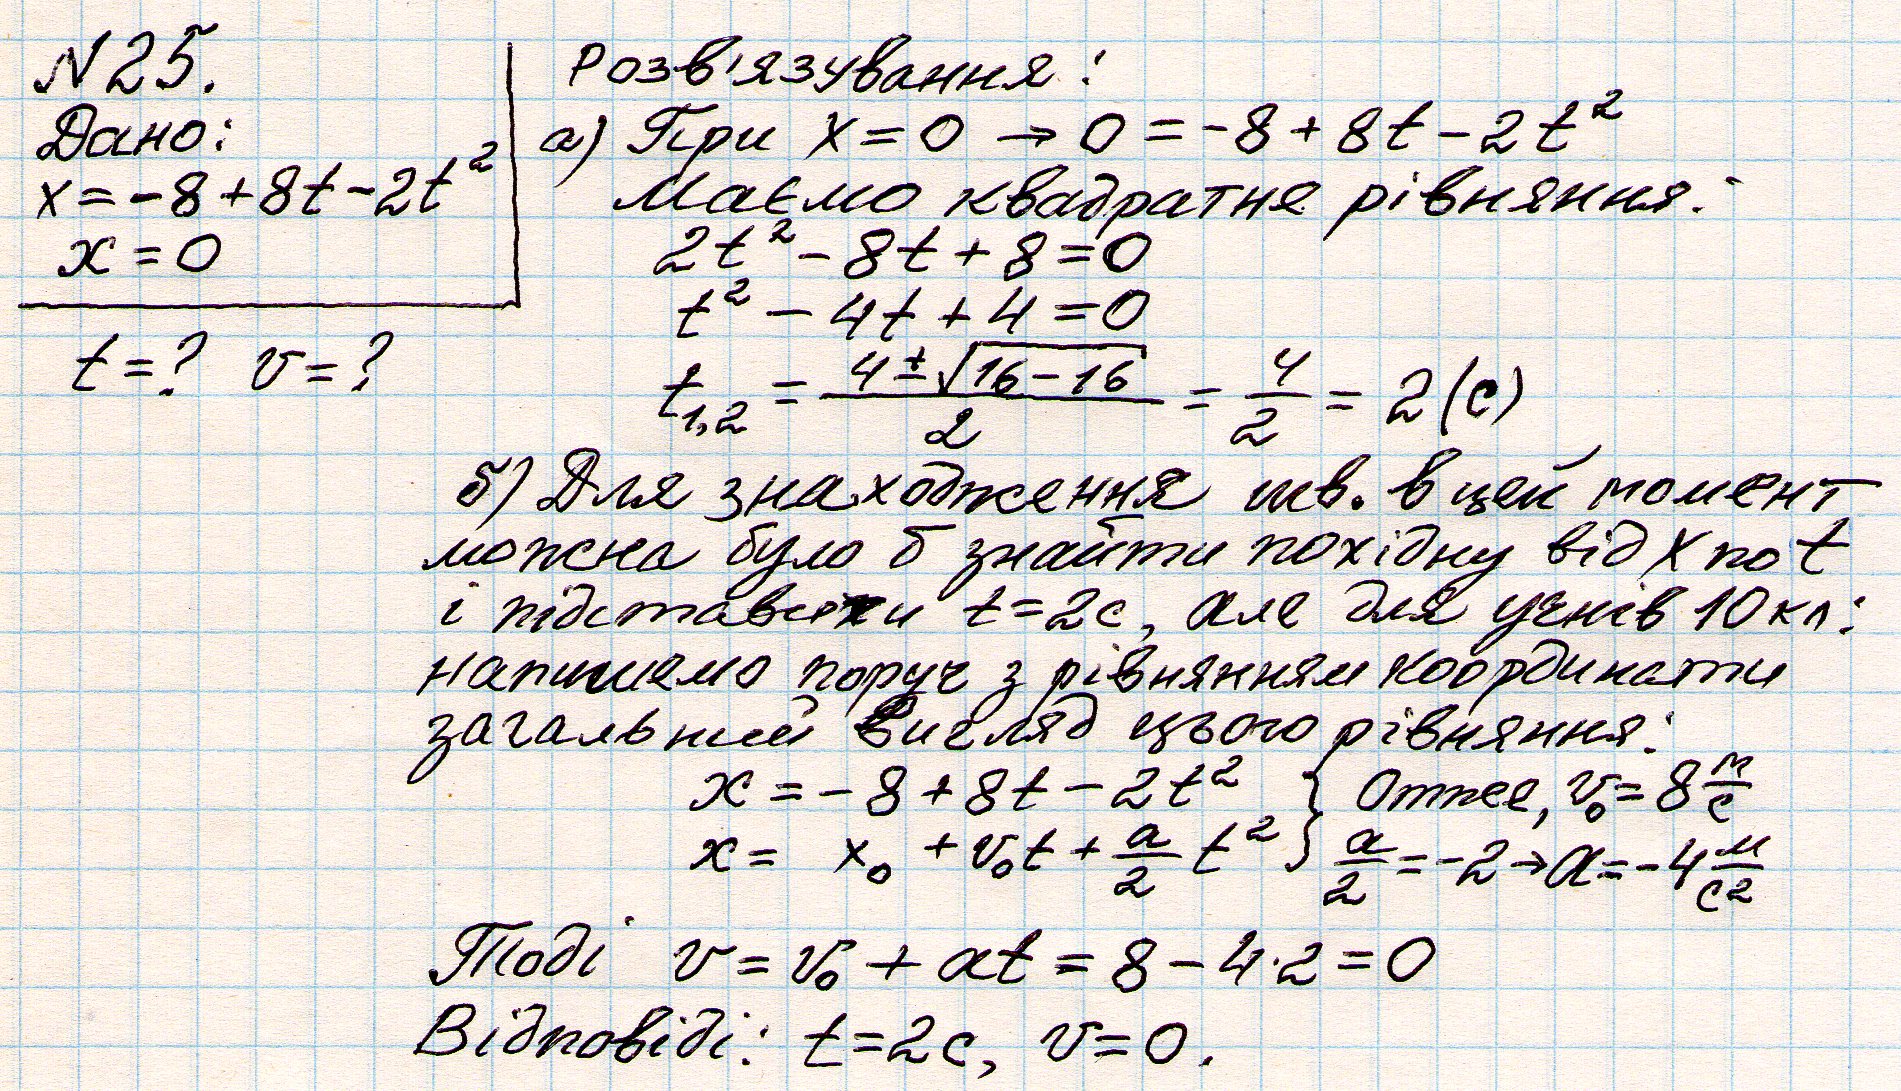 N25.
Дано:
x = -8 + 8t - 2t²
x = 0
t = ? v = ?
Розв'язування:
а) При x = 0 → 0 = -8 + 8t - 2t²
Маємо квадратне рівняння:
2t² - 8t + 8 = 0
t² - 4t + 4 = 0
t₁,₂ = (4 ± √(16 - 16))/2 = 4/2 = 2 (с)
б) Для знаходження шв. в цей момент
можна було б знайти похідну від x по t
і підставити t = 2с, але для учнів 10 кл:
напишемо поруч з рівнянням координати
загальний вигляд цього рівняння:
x = -8 + 8t - 2t² } Отже, v₀ = 8 м/с
x = x₀ + v₀t + a/2 t² } a/2 = -2 → a = -4 м/с²
Тоді v = v₀ + at = 8 - 4·2 = 0
Відповіді: t = 2с, v = 0.